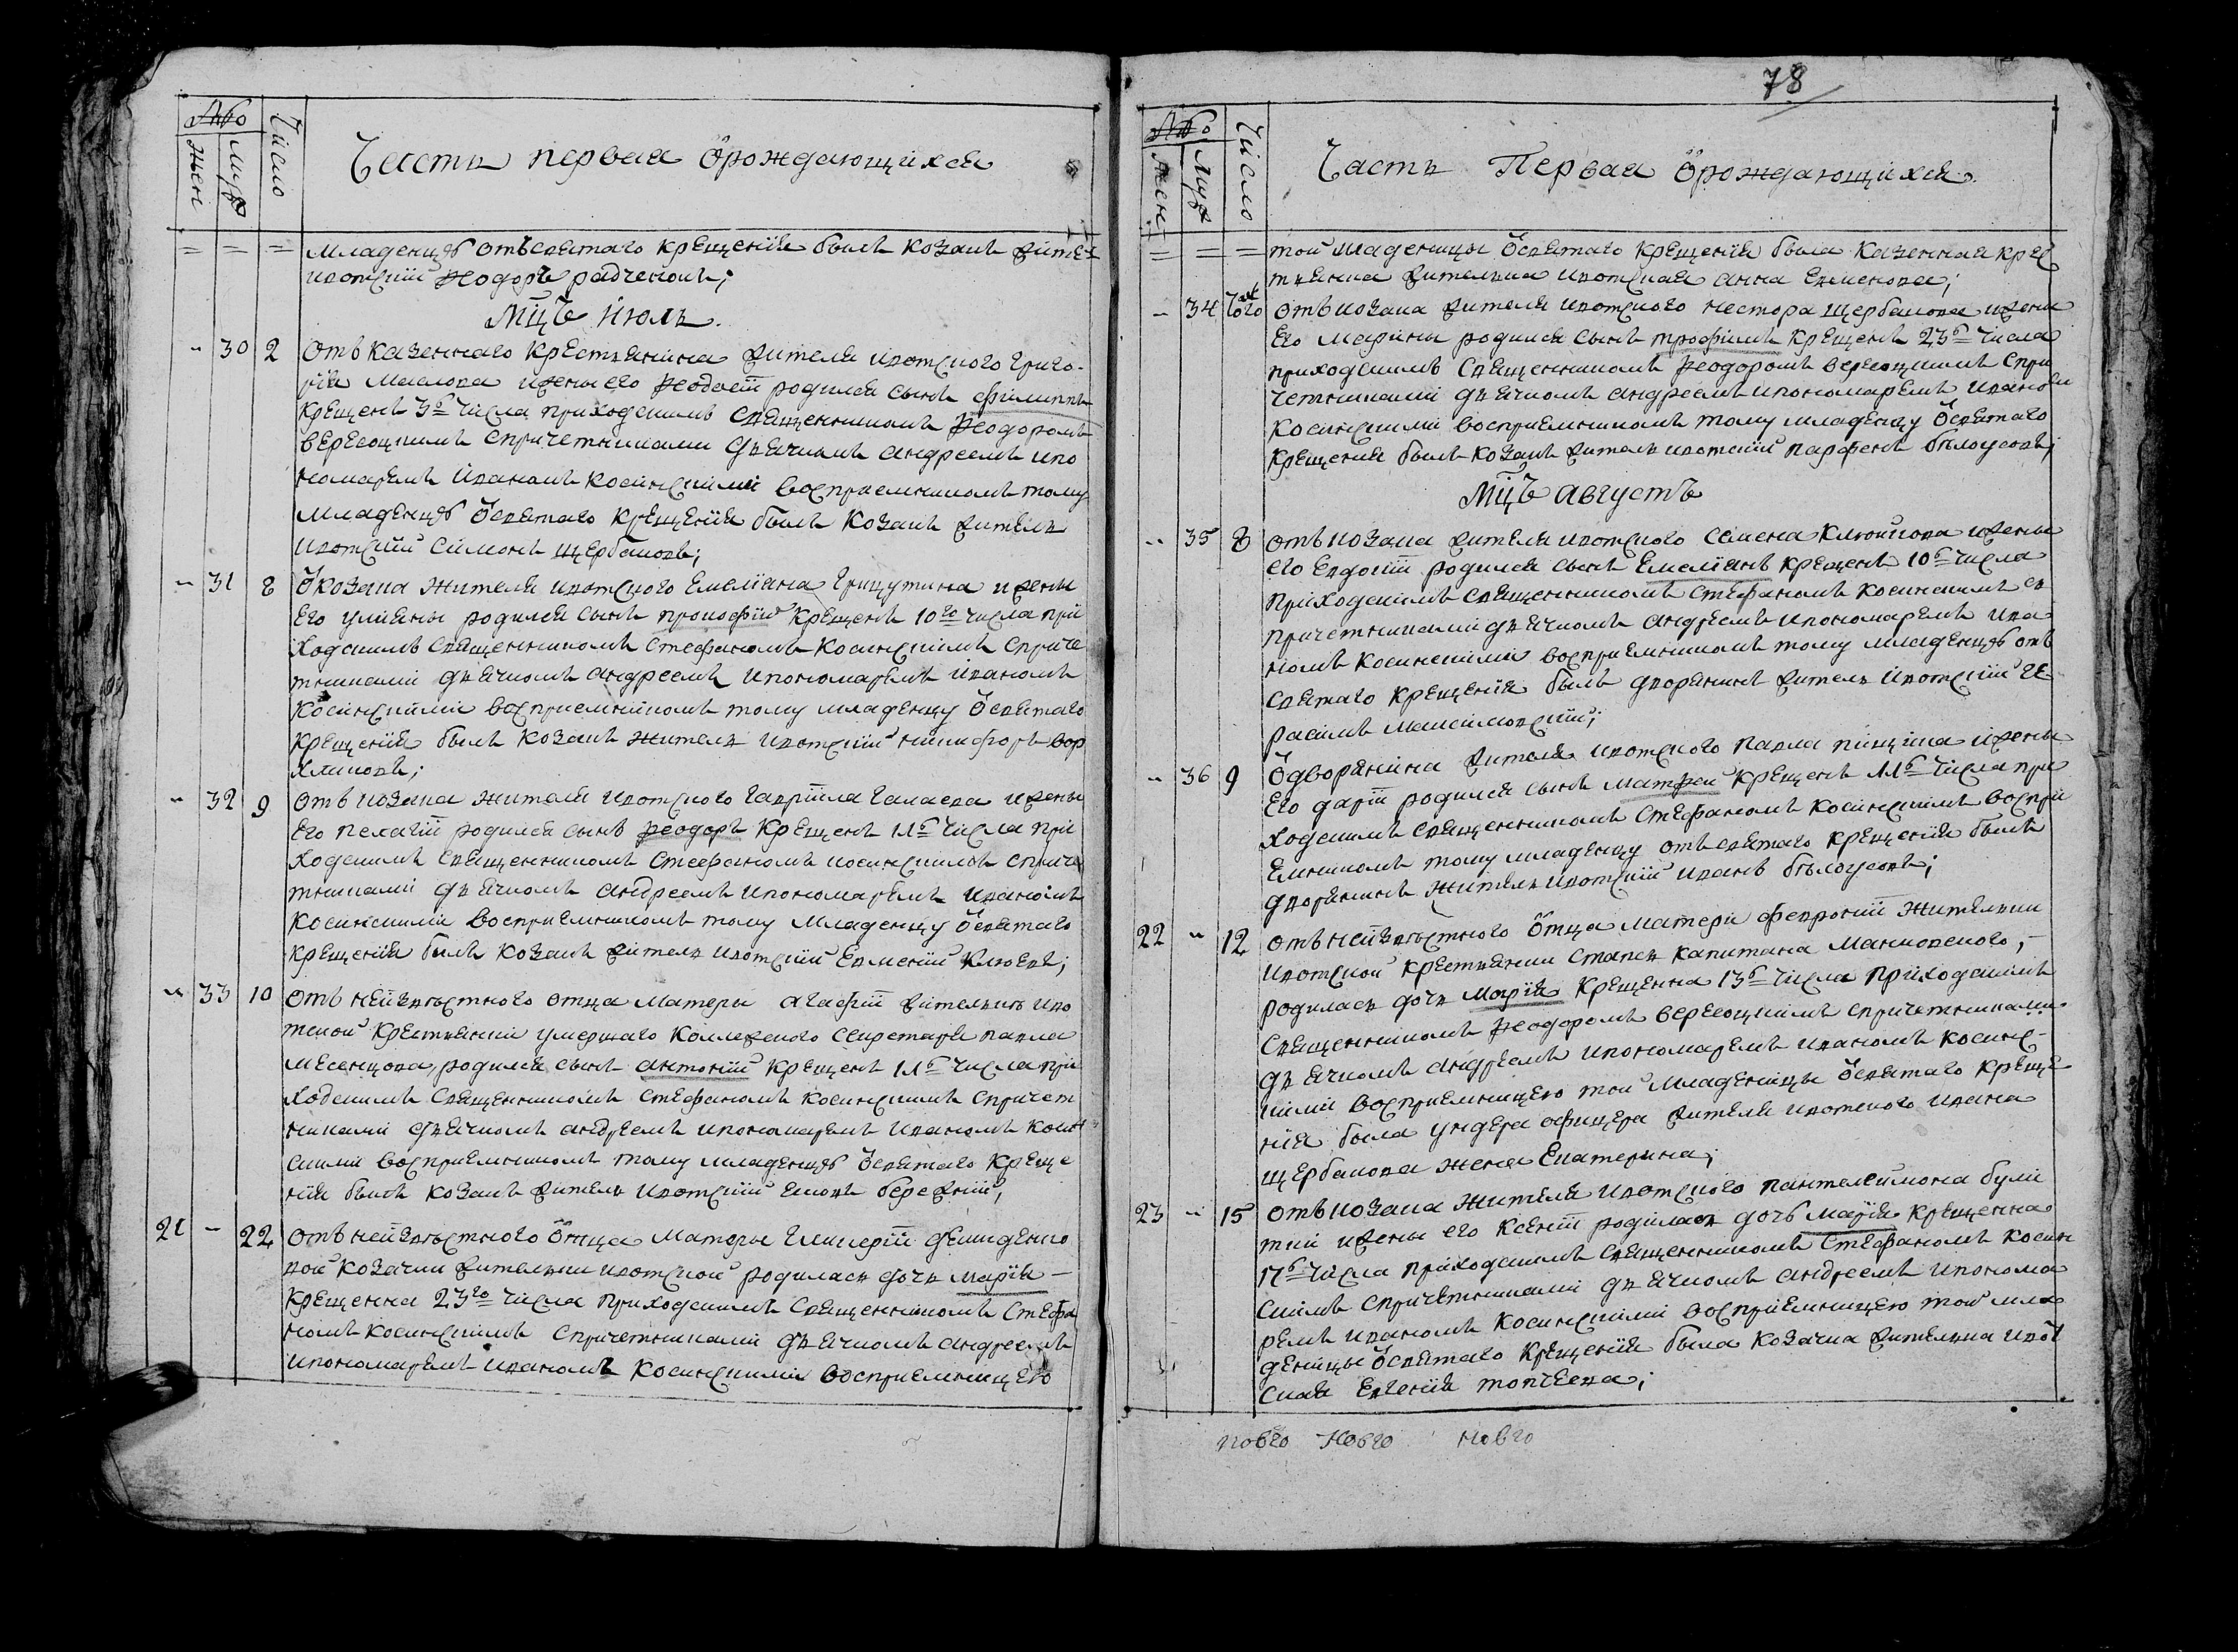 №
жен
муж
Число
Часть первая Ѽрождающихся
младенцѣ отъ святаго крещенія былъ козакъ житель
ивотскій Ѳеодоръ радченокъ;
Мц҃ъ Июль.
30 2 Отъ казеннаго крестьянина жителя ивотского григо-
рія маслова ижены его Ѳеодосіи родился сынъ филиппъ
крещенъ 3го числа приходскимъ священникомъ Ѳеодоромъ
вересоцкимъ спричетниками дьячкомъ андреемъ ипо
номаремъ Иваномъ косинскими воспріемникомъ тому
младенцѣ Ѽсвятаго крещенія былъ козакъ житель
ивотскій симонъ щербаковъ;
31 8 Ѽкозака жителя ивотского Емеліяна грицутина ижены
Его уліяны родился сынъ прокофій крещенъ 10го числа при
ходскимъ священникомъ стефаномъ косинскимъ с приче
тниками дьячкомъ андреемъ ипономаремъ иваномъ
косинскими воспріемникомъ тому младенцу Ѽсвятаго
крещенія былъ козакъ житель ивотскій никифоръ вор
хликовъ;
32 9 Отъ козака жителя ивотского гавріила галаева ижены
Его пелагіи родился сынъ Ѳеодоръ крещенъ 11го числа при
ходскимъ священникомъ стефаномъ косинскимъ сприче
тниками дьячкомъ андреемъ ипономаремъ иваномъ
косинскими воспріемникомъ тому младенцу Ѽсвятаго
крещенія былъ козакъ житель ивотскій Евменій Клюевъ;
33 10 Отъ неизвѣстного отца матеры агафіи жителькы иво
тской крестьянки умершаго коллежского секретаря павла
месенцова, родился сынъ антоній крещенъ 11го числа при
ходскимъ священникомъ стефаномъ косинскимъ спричет
никами дьячкомъ андреемъ ипономаремъ иваномъ косин
скими воспріемникомъ тому младенцѣ Ѽсвятаго креще
нія былъ козакъ житель ивотскій Ековъ бережній;
21 22 Отъ неизвѣстного Ѽтца матеры гликеріи демиденко
вой козачки жителькы ивотской родилась дочь марія
крещенна 23го числа приходскимъ священникомъ стефа
номъ косинскимъ спричетниками дьячкомъ андреемъ
ипономаремъ иваномъ косинскими воспріемницею
78
№
жен
муж
Число
Часть Первая Ѽрождающихся.
той младеницы Ѽсвятаго крещенія была казенная крес
тьянка жителька ивотская анна Евменова;
34 Отъ козака жителя ивотского нестора щербакова ижены
Его марины родился сынъ трофимъ крещенъ 23го числа
приходскимъ священникомъ Ѳеодоромъ вересоцкимъ спри
четниками дьячкомъ андреемъ ипономаремъ иваномъ
косинскими воспріемникомъ тому младенцу Ѽсвятаго
крещенія былъ козакъ житель ивотскій парфенъ бѣлоусовъ;
Мц҃ъ августъ
35 8 Отъ козака жителя ивотского семена клюйкова ижены
его Евдокіи родился сынъ Емеліянъ крещенъ 10го числа
приходскимъ священникомъ стефаномъ косинскимъ съ
причетниками дьячкомъ андреемъ ипономаремъ ива
номъ косинскими воспріемникомъ тому младенцѣ отъ
святаго крещенія былъ дворянинъ житель ивотскій ге
расимъ максимовскій;
36 9 Ѽдворянина жителя ивотского павла пищика ижены
Его даріи родился сынъ матѲей крещенъ 11го числа при
ходскимъ священникомъ стефаномъ косинскимъ воспрі
емникомъ тому младенцу отъ святаго крещенія былъ
дворянинъ житель ивотскій иванъ бѣлоусовъ;
22 12 Отъ неизвѣстного Ѽтца матери февроніи жителькы
ивотской крестьянки стапсъ капитана маньковского,
родилась дочь Марія крещенна 13го числа приходскимъ
священникомъ Ѳеодоромъ вересоцкимъ спричетниками
дьячкомъ андреемъ ипономаремъ иваномъ косинс-
кими воспріемницею той младеницы Ѽсвятаго креще
нія была ундера офицера жителя ивотского ивана
щербакова жена Екатерина;
23 15 Отъ козака жителя ивотского пантелеимона були
ткй ижены его ксеніи родилась дочь марія крещенна
17го числа приходскимъ священникомъ стефаномъ косин
скимъ спричетниками дьячкомъ андреемъ ипонома
ремъ иваномъ косинскими воспріемницею той мла
деницы Ѽсвятаго крещенія была козачка жителька ивот
ская Евгенія топчеева;
новго Новго новго